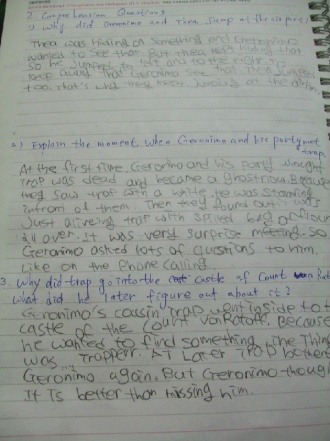 2. Comprehension Questions
1) Why did Geronimo and Thea Jump at the airport?
Thea was hiding on something and Geronimo
wanted to see that. But Thea kept hiding that
so he jumped to left and to the right. To
keep away that Geronimo see that Thea jumped
too. That's why they were jumping at the airport.
2) Explain the moment when Geronimo and his party met
trap.
At the first time, Geronimo and his party thought
Trap was dead and became a ghost. Because
they saw trap with a white, he was standing
infront of them. Then they found out it was
Just aliveing trap with spilled bag of flour
all over. It was very surprise meeting. So
Geronimo asked lots of questions to him.
Like on the phone calling.
3. Why did trap go into the castle of Count von Rat
what did he later figure out about it?
Geronimo's cousin trap went inside to t
castle of the Count von Ratoff. Because
he wanted to find something. The Thing
was... Tropper. At Later trap bother
Geronimo again. But Geronimo though
It Is better than missing him.